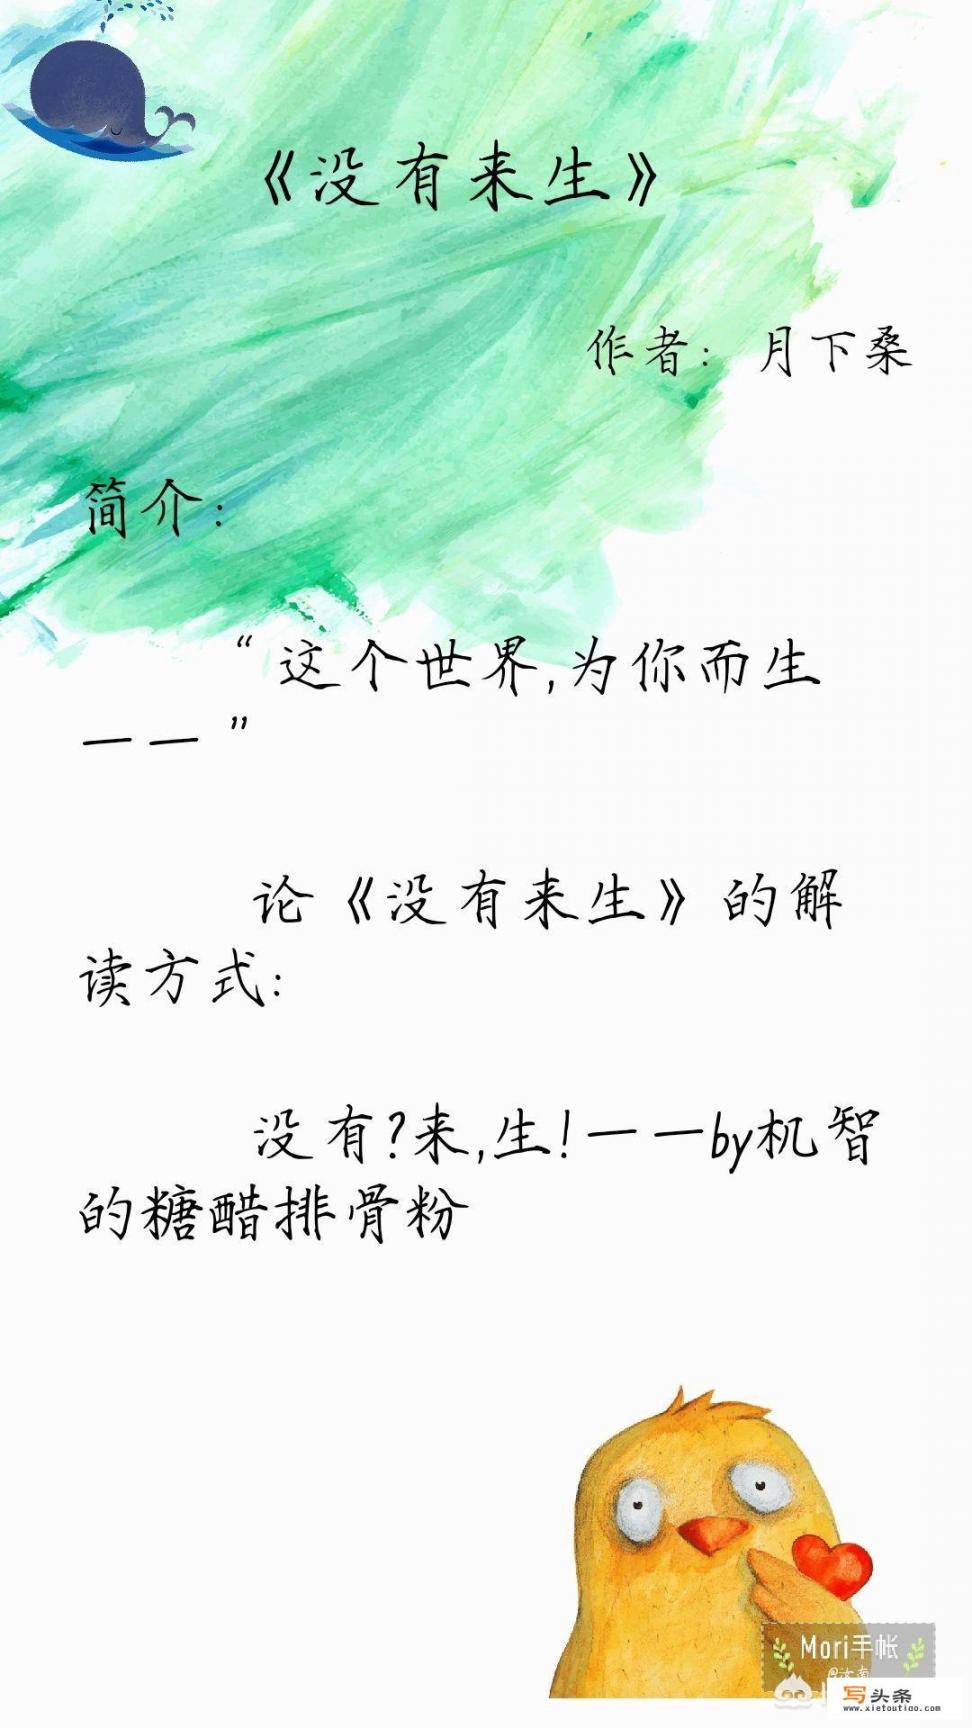 《没有来生》
作者：月下桑
简介：
“这个世界,为你而生
——”
论《没有来生》的解
读方式:
没有?来,生!——by机智
的糖醋排骨粉
Mori手帐
写头条
www.xietoutiao.com